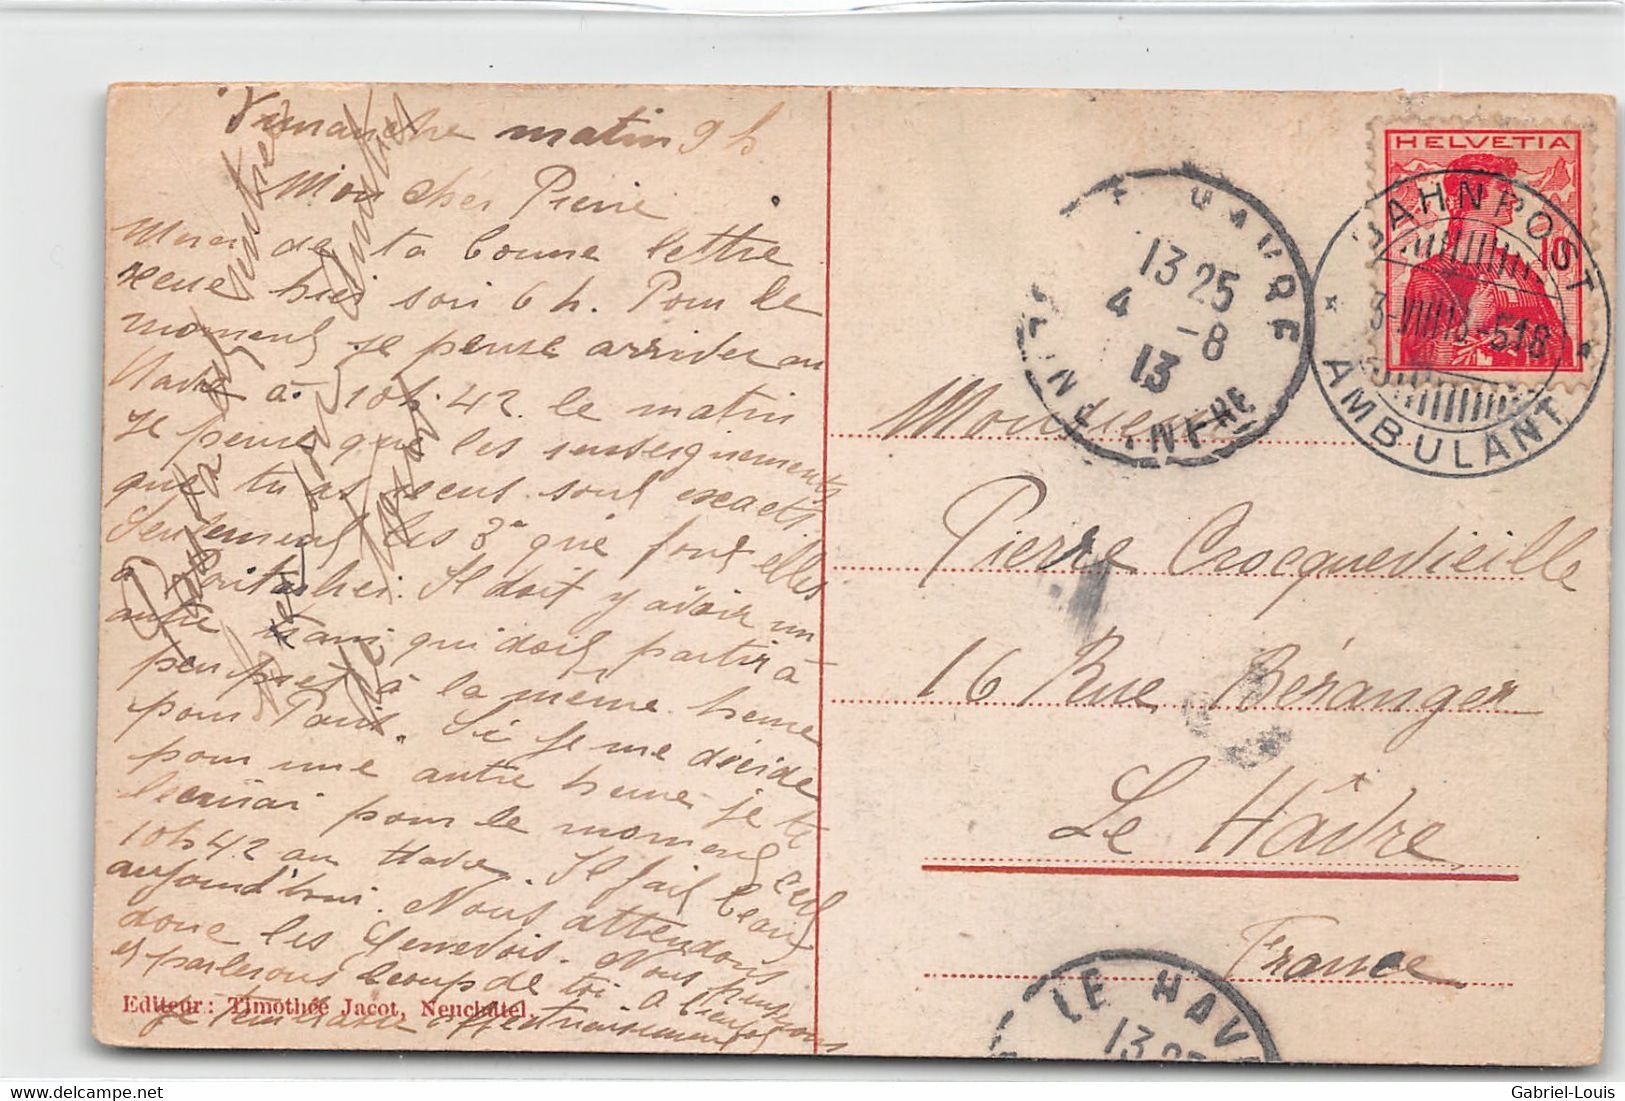 Dimanche matin 9 h
Mon cher Pierre
Merci de ta bonne lettre
reçue hier soir 6 h. Pour le
moment je pense arriver au
Havre à 10h.42 le matin
Je pense que les renseignements
que tu as reçus sont exacts
Seulement les 3e que font elles
à Pontarlier. Il doit y avoir un
autre train qui doit partir à
peu près à la même heure
pour Paris. Si je me décide
pour une autre heure je te
l'écrirai pour le moment c'est
10h42 au Havre. Il fait beau
aujourd'hui. Nous attendons
donc les Genevois. Nous pensons
et parlerons bcoup de toi. A bientôt
Je t'embrasse affectueusement
Editeur: Timothée Jacot, Neuchâtel.
HELVETIA
10
BAHNPOST
3-VIII 13-518
AMBULANT
LE HAVRE
13 25
4 -8
13
SEINE INFRE
Monsieur
Pierre Crocquevieille
16 Rue Béranger
Le Hâvre
France
LE HAVRE
13 25
Gabriel-Louis